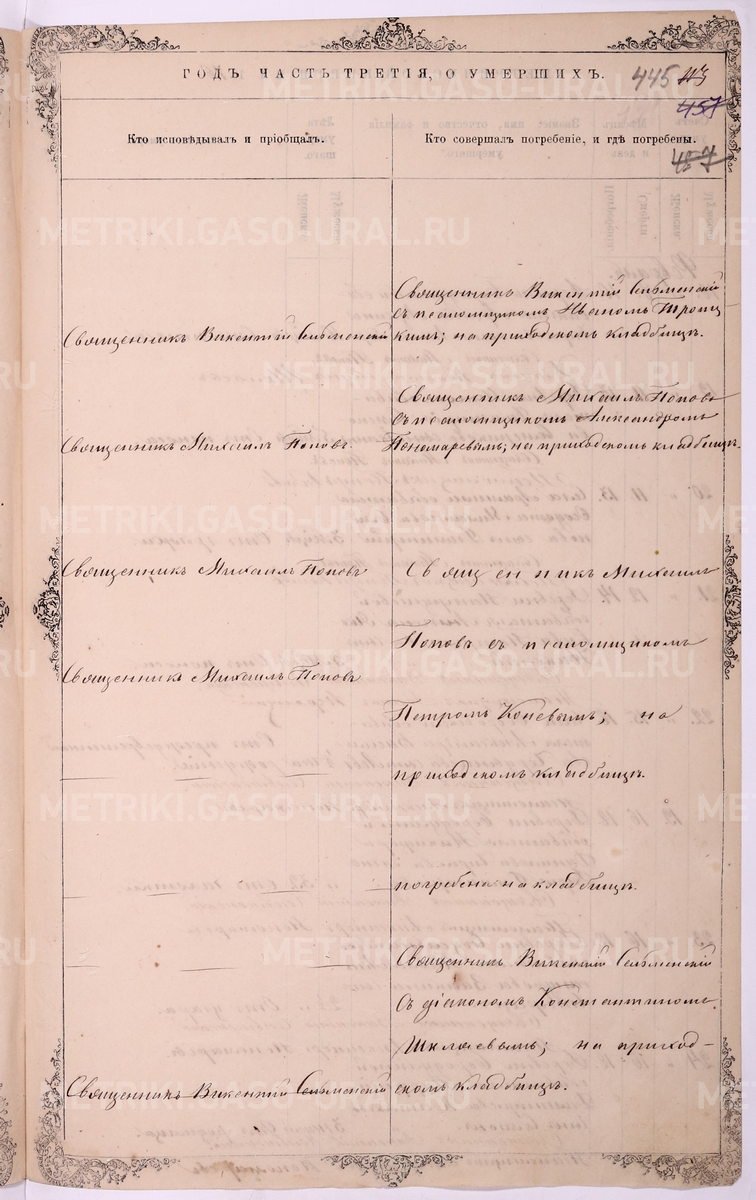 ГОДЪ ЧАСТЬ ТРЕТІЯ, О УМЕРШИХЪ.
445
457
457
Кто исповѣдывалъ и пріобщалъ.
Кто совершалъ погребеніе, и гдѣ погребены.
Священникъ Викентій
Священникъ Викентій
съ псаломщикомъ Иваномъ Троиц-
кимъ; на приходскомъ кладбищѣ.
Священникъ Михаилъ Поповъ.
Священникъ Михаилъ Поповъ
съ псаломщикомъ Александромъ
Пономаревымъ; на приходскомъ кладбищѣ.
Священникъ Михаилъ Поповъ
Священникъ Михаилъ
Поповъ съ псаломщикомъ
Священникъ Михаилъ Поповъ
Петромъ Коневымъ; на
приходскомъ кладбищѣ.
погребена на кладбищѣ.
Священникъ Викентій
съ діакономъ Константиномъ
Шкляевымъ; на приход-
скомъ кладбищѣ.
Священникъ Викентій
METRIKI.GASO-URAL.RU